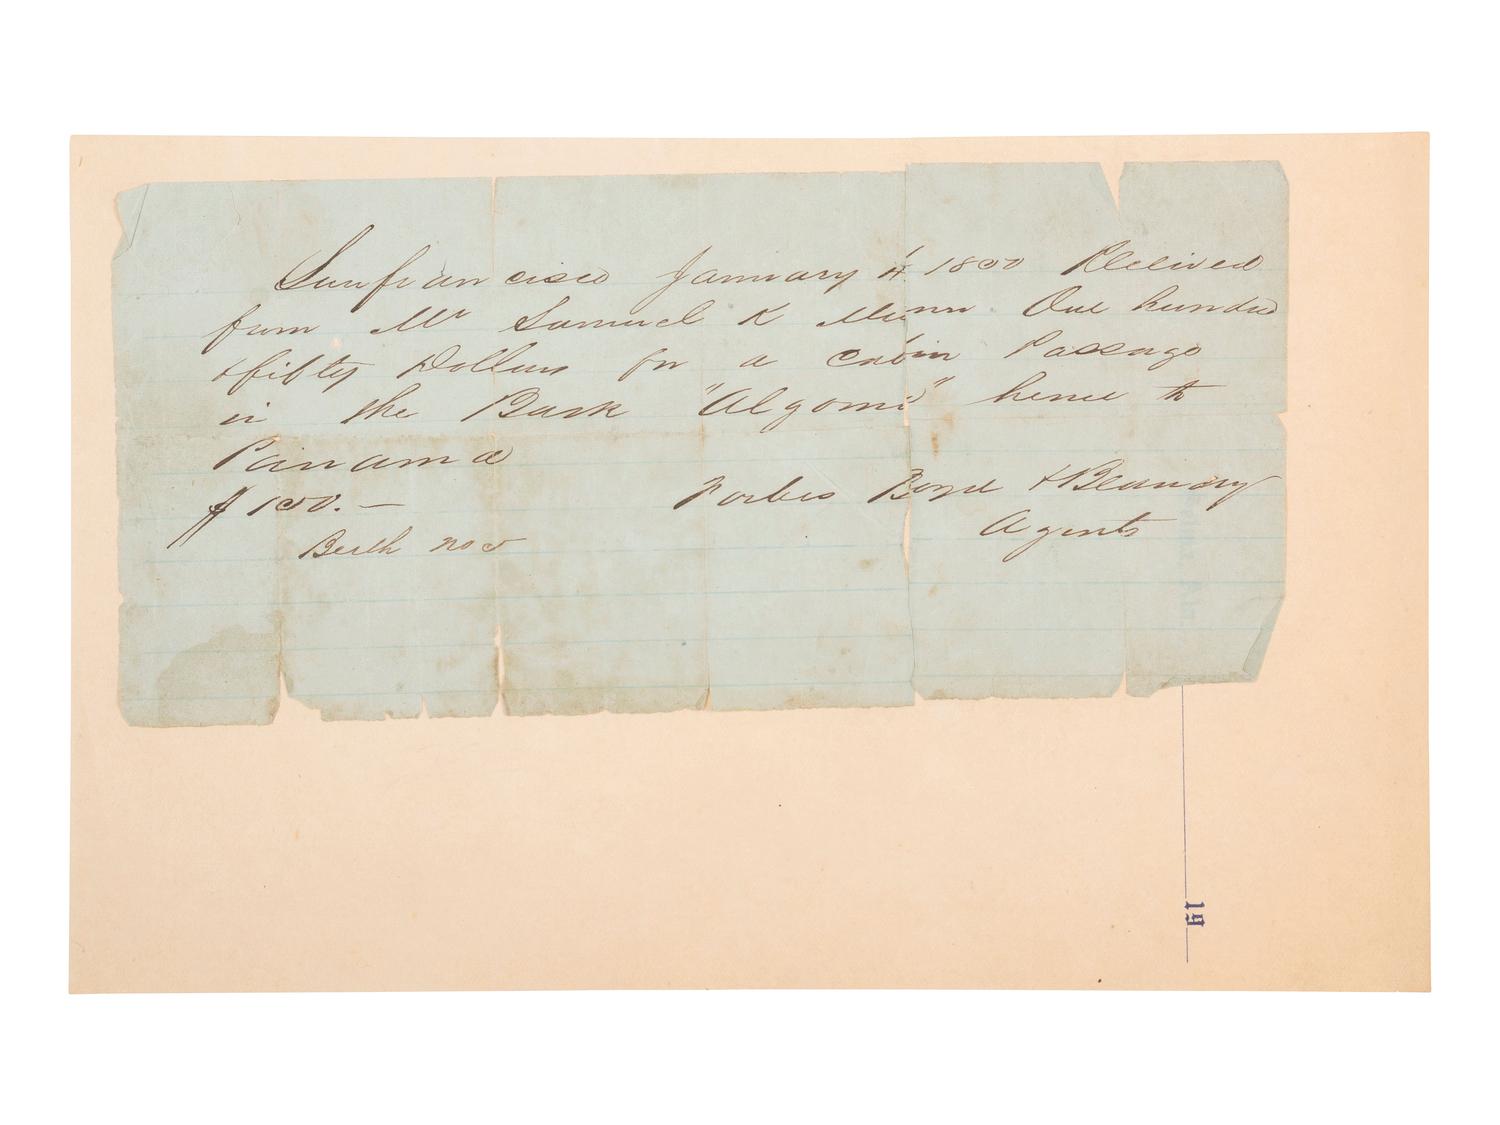 Sanfrancisco January 4 1850 Received
from Mr Samuel K Minn One hundred
& fifty Dollars for a Cabin Passage
in the Bark "Algoma" hence to
Panama
$150.—
Forbes Boyd & Beaudry
Agents
Berth no 5
19